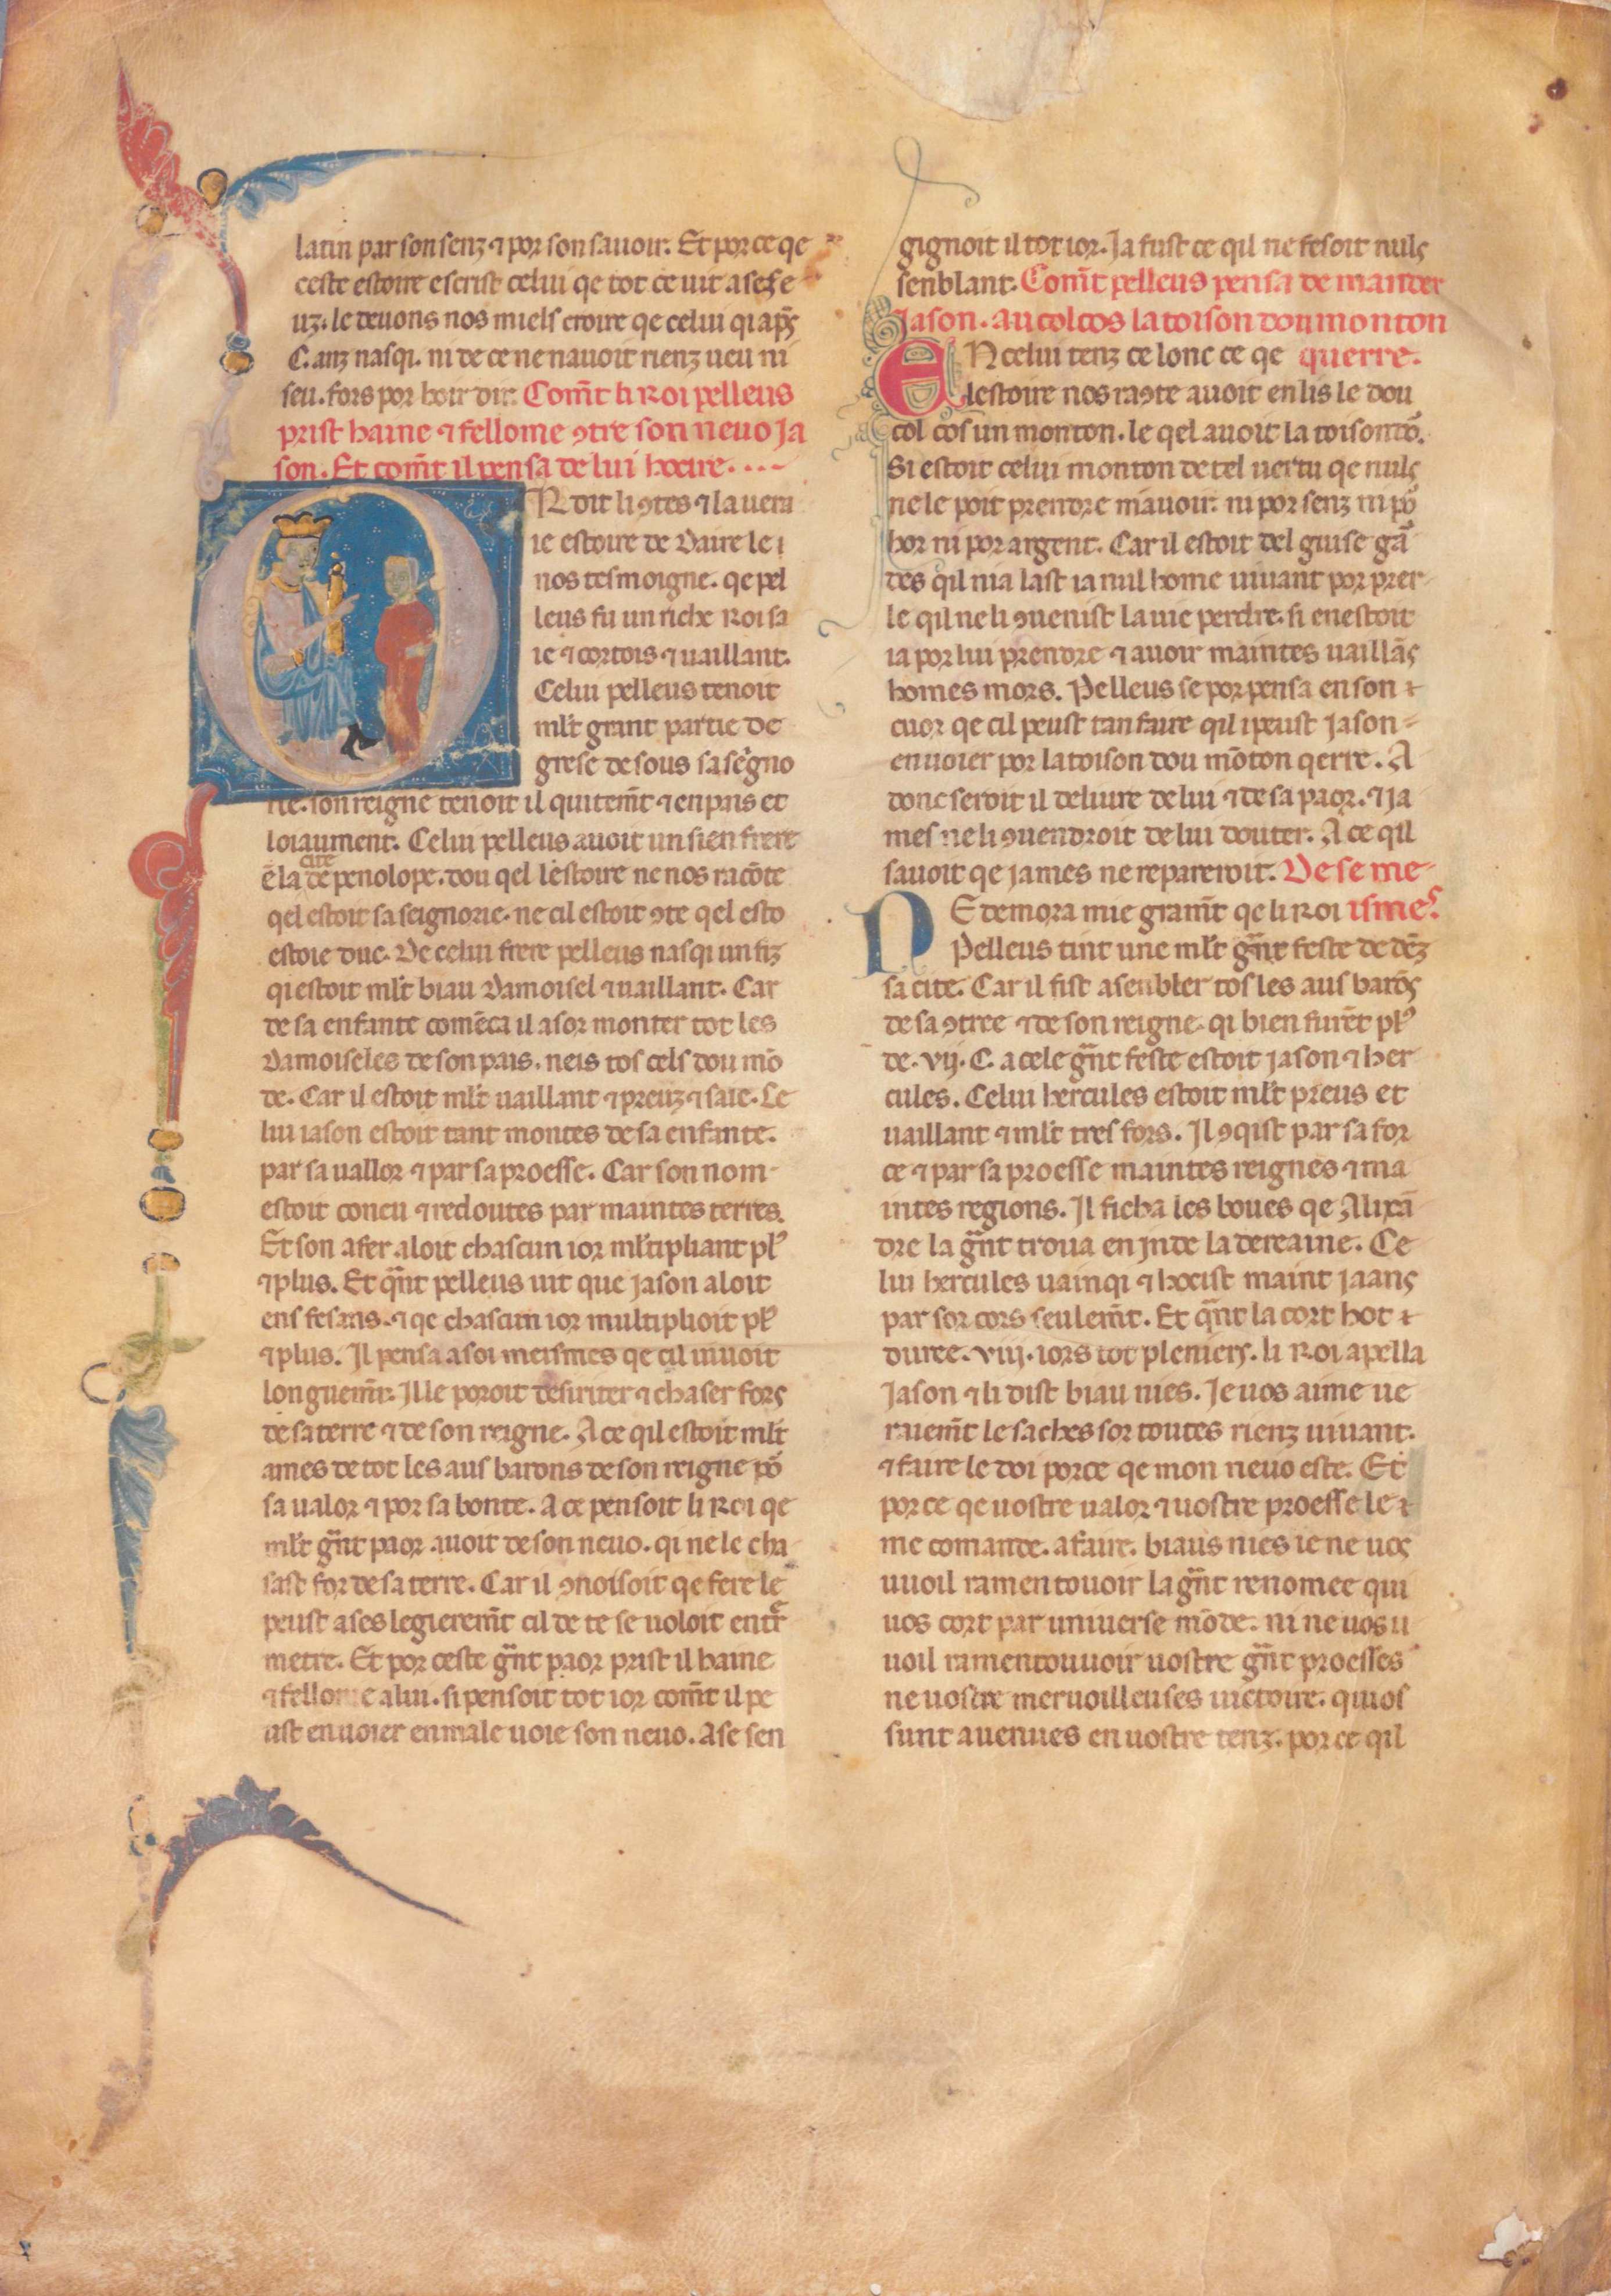 latin par son senz ⁊ por son sauoir. Et por ce qe
ceste estoire escrist celui qe tot ce uit a ses e
uz. le deuons nos miels croire qe celui qi ap̃s
C. anz nasqi. ni de ce ne nauoit rienz ueu ni
seu. fors por hoir dir. Com̃t li Roi pelleus
prist haine ⁊ fellome ꝯtre son neuo Ja
son. Et com̃t il pensa de lui hocire....
N dit li ꝯtes ⁊ la uera
ie estoire de Daire le i
nos tesmoigne. qe pel
leus fu un riche Roi sa
ie ⁊ cortois ⁊ uaillant.
Celui pelleus tenoit
ml̃t grant partie de
grese desous sa segno
rie. son reigne tenoit il quitem̃t ⁊ en pais et
loiaument. Celui pelleus auoit un sien frere
ẽ la cite de penolope. dou qel lestoire ne nos racõte
qel estoit sa seignorie. ne cil estoit ꝯte qel esto
estoie duc. De celui frere pelleus nasqi un fiz
qi estoit ml̃t biau Damoisel ⁊ uaillant. Car
de sa enfante comẽca il asor monter tot les
Damoiseles de son pais. neis tos cels dou mõ
de. Car il estoit ml̃t uaillant ⁊ preuz ⁊ saie. Ce
lui iason estoit tant montes de sa enfante.
par sa uallor ⁊ par sa proesse. Car son nom
estoit coneu ⁊ redoutes par maintes terres.
Et son afer aloit chascun ior ml̃tipliant pl᾽
⁊ plus. Et q̃nt pelleus uit que Jason aloit
ens fesans. ⁊ qe chascun ior multiplioit pl᾽
⁊ plus. Il pensa a soi meismes qe cil uiuoit
longuem̃t. Il le poroit desiriter ⁊ chaser fors
de sa terre ⁊ de son reigne. A ce qil estoit ml̃t
ames de tot les aus barons de son reigne põ
sa ualor ⁊ por sa bonte. A ce pensoit li Roi qe
ml̃t g̃nt paor auoit de son neuo. qi ne le cha
sast for de sa terre. Car il ꝯnoisoit qe fere le
peust ases legierem̃t cil de te se uoloit entr̃
metre. Et por ceste g̃nt paor prist il haine
⁊ fellonie a lui. si pensoit tot ior com̃t il pe
ust enuoier en male uoie son neuo. A se sen
gignoit il tot ior. Ja fust ce qil ne fesoit nuls
senblant. Com̃t pelleus pensa de mander
Jason. au colcos la toison dou monton
EN celui tenz ce lonc ce qe querre.
lestoire nos raꝯte auoit en lis le dou
col cos un monton. le qel auoit la toison dõ.
Si estoit celui monton de tel uertu qe nuls
ne le poit prendre m̃auoir. ni por senz ni põ
hor ni por argent. Car il estoit del guise gã
des qil nia last ia nul home uiuant por prer
le qil ne li ꝯuenist la uie perdre. si en estoit
ia por lui prendre ⁊ auoir maintes uaillãs
homes mors. Pelleus se por pensa en son ⁊
cuor qe cil peust tan faire qil i peust Jason
enuoier por la toison dou mõton qerre. A
donc seroit il deliure de lui ⁊ de sa paor. ⁊ ja
mes ne li ꝯuendroit de lui douter. A ce qil
sauoit qe james ne repareroit. De se me
NE demora mie gram̃t qe li Roi ismes.
Pelleus tint une ml̃t g̃nt feste dedẽz
sa cite. Car il fist asenbler tos les aus barõs
de sa ꝯtree ⁊ de son reigne. qi bien furẽt pl᾽
de. vij. C. a cele g̃nt feste estoit Jason ⁊ her
cules. Celui hercules estoit ml̃t preus et
uaillant ⁊ ml̃t tres fors. Il ꝯqist par sa for
ce ⁊ par sa proesse maintes reignes ⁊ ma
intes regions. Il ficha les boues qe Alixã
dre la g̃nt troua en Inde la dereaine. Ce
lui hercules uainqi ⁊ hocist maint jaans
par sor cors seulem̃t. Et q̃nt la cort hot ⁊
duree. viij. iors tot pleniers. li Roi apella
Jason ⁊ li dist biau nies. Je uos aime ue
raiem̃t le saches sor toutes rienz uiuant.
⁊ faire le doi porce qe mon neuo este. Et
por ce qe uostre ualor ⁊ uostre proesse le ⁊
me comande. a faire. biaus nies ie ne uos
uuoil ramentouoir la g̃nt renomee qui
uos cort par uniuerse mõde. ni ne uos u
uoil ramentouuoir uostre g̃nt proesses
ne uostre meruoilleuses uictoire. qui uos
sunt auenues en uostre tenz. por ce qil